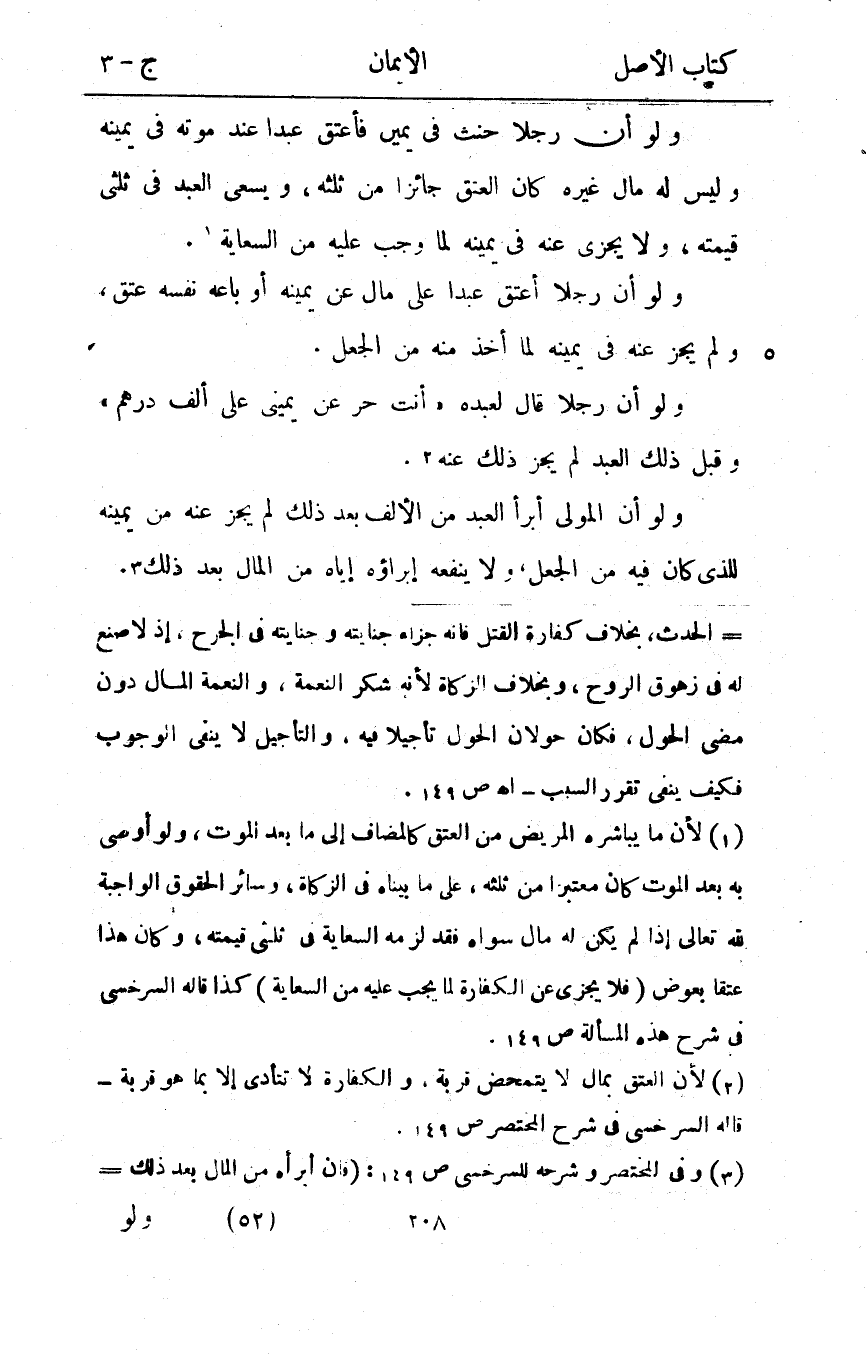 كتاب الأصل الأيمان ج – ٣
و لو أن رجلا حنث فى يمين فأعتق عبدا عند موته فى يمينه
و ليس له مال غيره كان العتق جائزا من ثلثه ، و يسعى العبد فى ثلثى
قيمته ، و لا يجزى عنه فى يمينه لما وجب عليه من السعاية ١ .
و لو أن رجلا أعتق عبدا على مال عن يمينه أو باعه نفسه عتق ،
٥ و لم يجز عنه فى يمينه لما أخذ منه من الجعل .
و لو أن رجلا قال لعبده « أنت حر عن يمينى على ألف درهم »
و قبل ذلك العبد لم يجز ذلك عنه ٢ .
و لو أن المولى أبرأ العبد من الألف بعد ذلك لم يجز عنه من يمينه
للذى كان فيه من الجعل ، و لا ينفعه إبراؤه إياه من المال بعد ذلك ٣ .
= الحدث ، بخلاف كفارة القتل فانه جزاء جنايته و جنايته فى الجرح ، إذ لا صنع
له فى زهوق الروح ، و بخلاف الزكاة لأنه شكر النعمة ، و النعمة المال دون
مضى الحول ، فكان حولان الحول تأجيلا فيه ، و التأجيل لا ينفى الوجوب
فكيف ينفى تقرر السبب – اه ص ١٤٩ .
(١) لأن ما يباشره المريض من العتق كالمضاف إلى ما بعد الموت ، و لو أوصى
به بعد الموت كان معتبرا من ثلثه ، على ما بيناه فى الزكاة ، و سائر الحقوق الواجبة
لله تعالى إذا لم يكن له مال سواه فقد لزمه السعاية فى ثلثى قيمته ، و كان هذا
عتقا بعوض ( فلا يجزى عن الكفارة لما يجب عليه من السعاية ) كذا قاله السرخسى
فى شرح هذه المسألة ص ١٤٩ .
(٢) لأن العتق بمال لا يتمحض قربة ، و الكفارة لا تتأدى إلا بما هو قربة –
قاله السرخسى فى شرح المختصر ص ١٤٩ .
(٣) و فى المختصر و شرحه للسرخسى ص ١٤٩ : (فان أبرأه من المال بعد ذلك =
٢٠٨ (٥٢) و لو